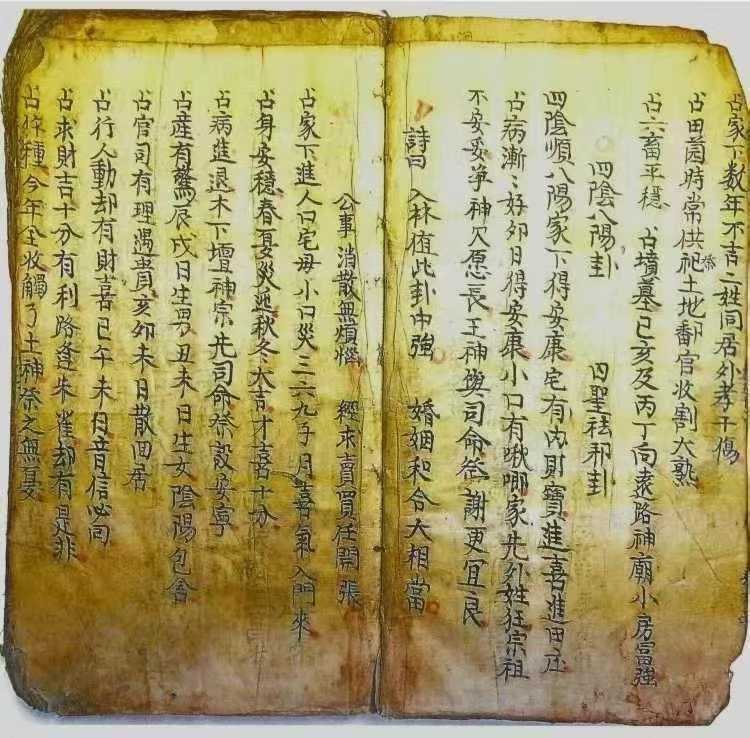 占家下数年不吉二姓同居外孝干傷
占田蚕時常供祀土地鄰官收割大熟
祭
占六畜平穩 占墳墓巳亥及丙丁向遠路神廟小房富強
四陰八陽卦 四聖祛邪卦
四陰順八陽家下得安康宅有內財寶進喜進田庄
占病漸〻好卯日得安康小口有啾唧家先外姓狂宗祖
不安妥爭神欠愿長王神與司命祭謝更宜良
詩曰 入林值此卦中強 婚姻和合大相當
公事消散無煩惱 經求賣買任開張
占家下進人口宅毋小口災三六九子月喜氣入門來
占身安穩春夏災延秋冬大吉才喜十分
占病進退木下壇神宗先司命祭設安寧
占產有驚辰戌日生男丑未日生女陰陽包含
占官司有理遇貴亥卯未日散回居
占行人動却有財喜巳午未日音信必向
占求財吉十分有利路逢朱雀却有是非
占作種今年全收觸了土神祭之無憂